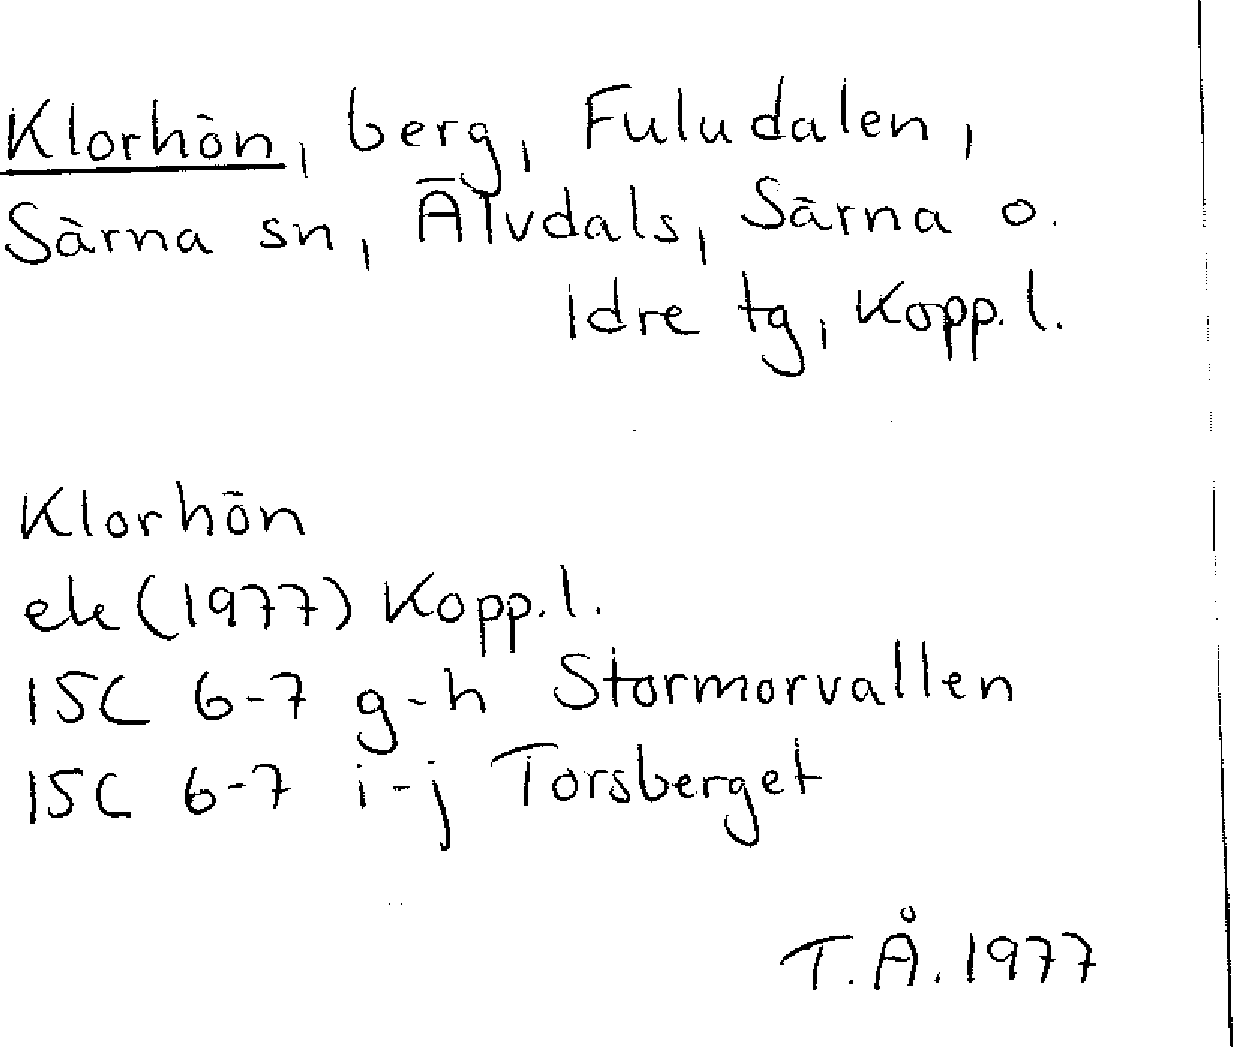 Klorhön, berg, Fuludalen,
Särna sn, Älvdals, Särna o.
Idre tg, Kopp. l.
Klorhön
ek (1977) Kopp. l.
15C 6-7 g-h Stormorvallen
15C 6-7 i-j Torsberget
T.Å. 1977